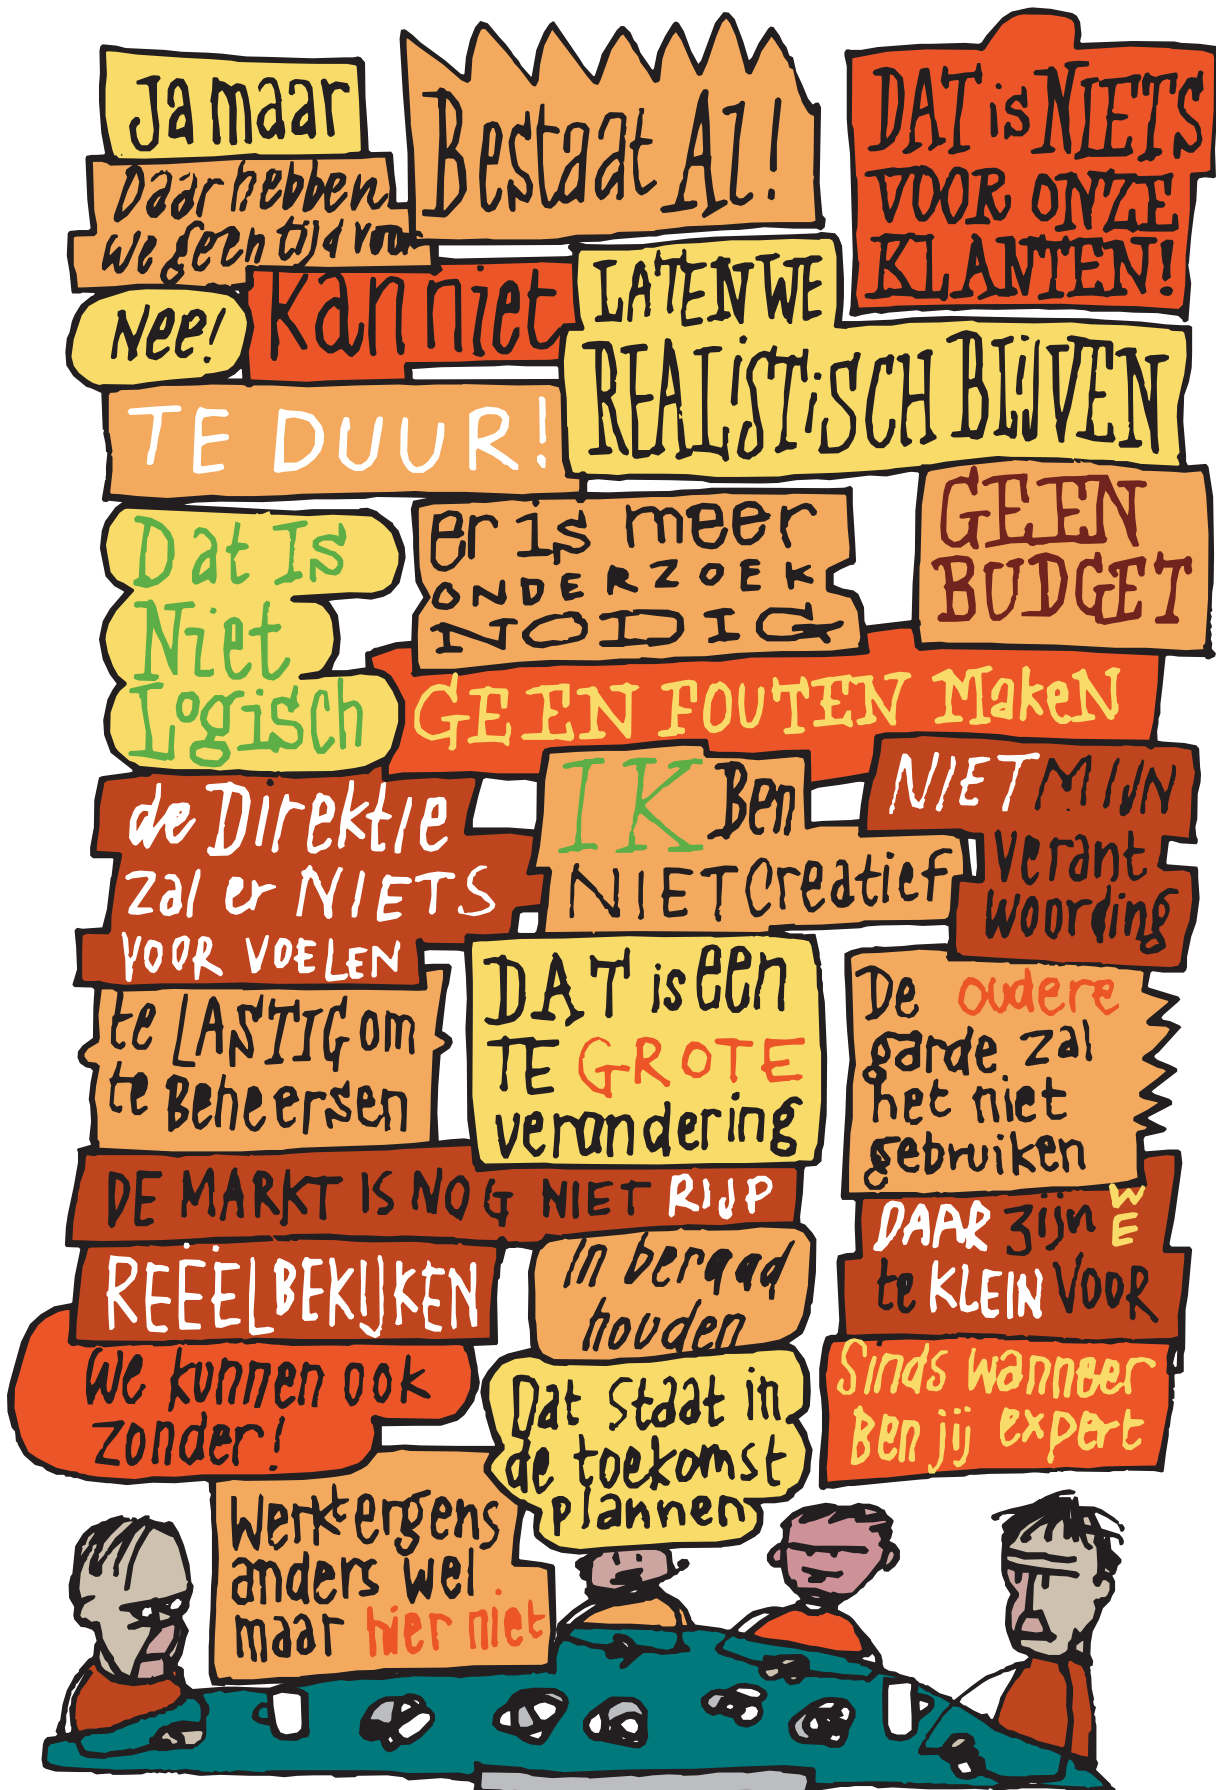 Ja maar
Bestaat Al!
DAT is NIETS
VOOR ONZE
KLANTEN!
Daar hebben
we geen tijd voor
Nee!
kan niet
LATEN WE
REALiSTiSCH BLijVEN
TE DUUR!
GEEN
BUDGET
Dat Is
Niet
Logisch
er is meer
ONDERZOEK
NODIG
GEEN FOUTEN MakeN
de Direktie
zal er NIETS
VOOR VOELEN
IK Ben
NIET Creatief
NIET MIJN
verant
woording
te LASTIG om
te Beheersen
DAT is een
TE GROTE
verandering
De oudere
garde zal
het niet
gebruiken
DE MARKT IS NOG NIET RIJP
DAAR zijn WE
te KLEIN VOOR
REËEL BEKIJKEN
In beraad
houden
We kunnen ook
zonder!
Dat staat in
de toekomst
plannen
Sinds wanneer
Ben jij expert
Werkt ergens
anders wel
maar hier niet